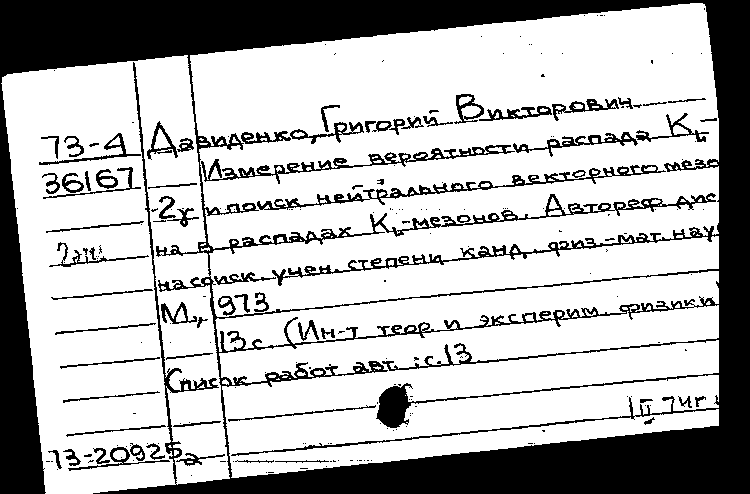 73-4 Давиденко, Григорий Викторович.
36167 Измерение вероятности распада К_L-
2γ и поиск нейтрального векторного мезо
на в распадах К_L-мезонов. Автореф. дис
на соиск. учен. степени канд. физ.-мат. нау
М., 1973.
13 с. (Ин-т теор. и эксперим. физики)
Список работ авт.: с. 13.
1 II 74г
73-20925а